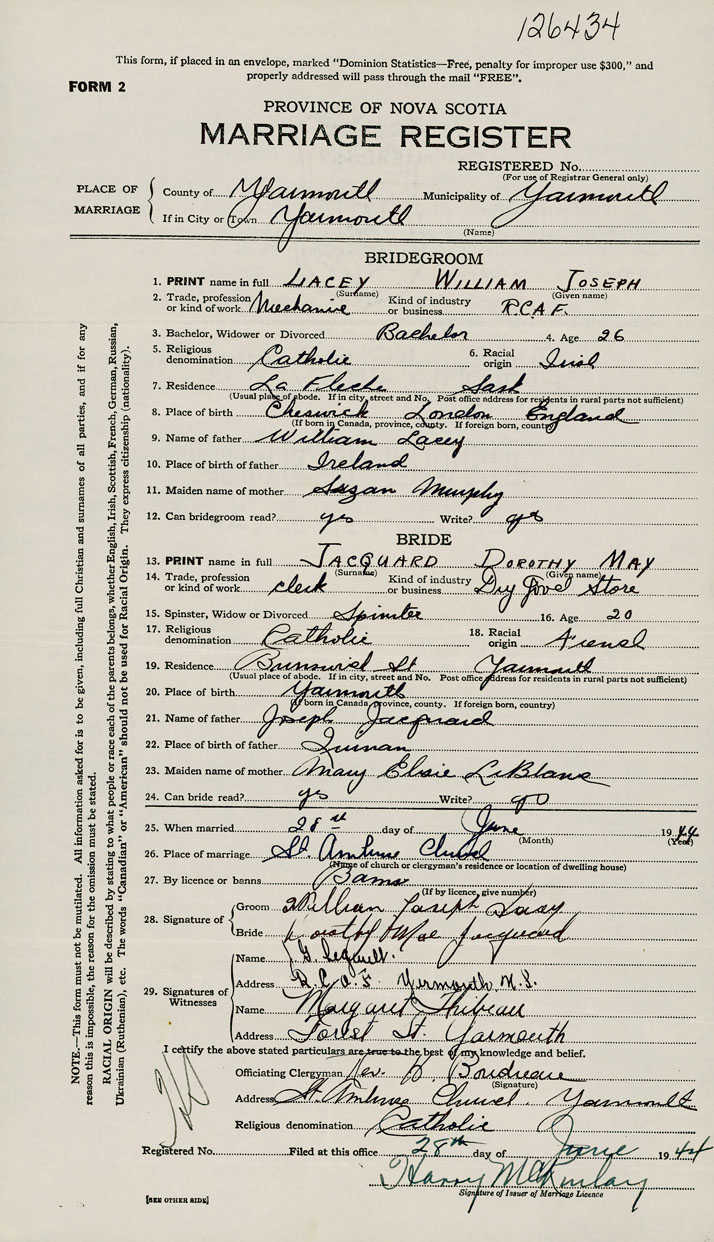 126434
This form, if placed in an envelope, marked "Dominion Statistics—Free, penalty for improper use $300," and
properly addressed will pass through the mail "FREE".
FORM 2
PROVINCE OF NOVA SCOTIA
MARRIAGE REGISTER
REGISTERED No.
(For use of Registrar General only)
PLACE OF MARRIAGE
County of Yarmouth Municipality of Yarmouth
If in City or Town Yarmouth
(Name)
BRIDEGROOM
1. PRINT name in full LACEY WILLIAM JOSEPH
(Surname) (Given name)
2. Trade, profession or kind of work Mechanic Kind of industry or business R.C.A.F.
3. Bachelor, Widower or Divorced Bachelor 4. Age 26
5. Religious denomination Catholic 6. Racial origin Irish
7. Residence La Fleche Sask
(Usual place of abode. If in city, street and No. Post office address for residents in rural parts not sufficient)
8. Place of birth Cheswick London England
(If born in Canada, province, county. If foreign born, country)
9. Name of father William Lacey
10. Place of birth of father Ireland
11. Maiden name of mother Suzan Murphy
12. Can bridegroom read? yes Write? yes
BRIDE
13. PRINT name in full JACQUARD DOROTHY MAY
(Surname) (Given name)
14. Trade, profession or kind of work clerk Kind of industry or business Dry Good Store
15. Spinster, Widow or Divorced Spinster 16. Age 20
17. Religious denomination Catholic 18. Racial origin French
19. Residence Brunswick St Yarmouth
(Usual place of abode. If in city, street and No. Post office address for residents in rural parts not sufficient)
20. Place of birth Yarmouth
(If born in Canada, province, county. If foreign born, country)
21. Name of father Joseph Jacquard
22. Place of birth of father Quinan
23. Maiden name of mother Mary Elsie LeBlanc
24. Can bride read? yes Write? yes
25. When married 28th day of June 1944
(Month) (Year)
26. Place of marriage St Ambrose Church
(Name of church or clergyman's residence or location of dwelling house)
27. By licence or banns Banns
(If by licence, give number)
28. Signature of
Groom William Joseph Lacey
Bride Dorothy Mae Jacquard
29. Signatures of Witnesses
Name G. Legault.
Address R.C.A.F. Yarmouth N.S.
Name Margaret Thibeau
Address Forest St. Yarmouth
I certify the above stated particulars are true to the best of my knowledge and belief.
Officiating Clergyman Rev. Boudreau
(Signature)
Address St. Ambrose Church. Yarmouth
Religious denomination Catholic
Registered No. Filed at this office 28th day of June 1944
Harry McKinlay
Signature of Issuer of Marriage Licence
[SEE OTHER SIDE]
NOTE.—This form must not be mutilated. All information asked for is to be given, including full Christian and surnames of all parties, and if for any
reason this is impossible, the reason for the omission must be stated.
RACIAL ORIGIN will be described by stating to what people or race each of the parents belongs, whether English, Irish, Scottish, French, German, Russian,
Ukrainian (Ruthenian), etc. The words "Canadian" or "American" should not be used for Racial Origin. They express citizenship (nationality).